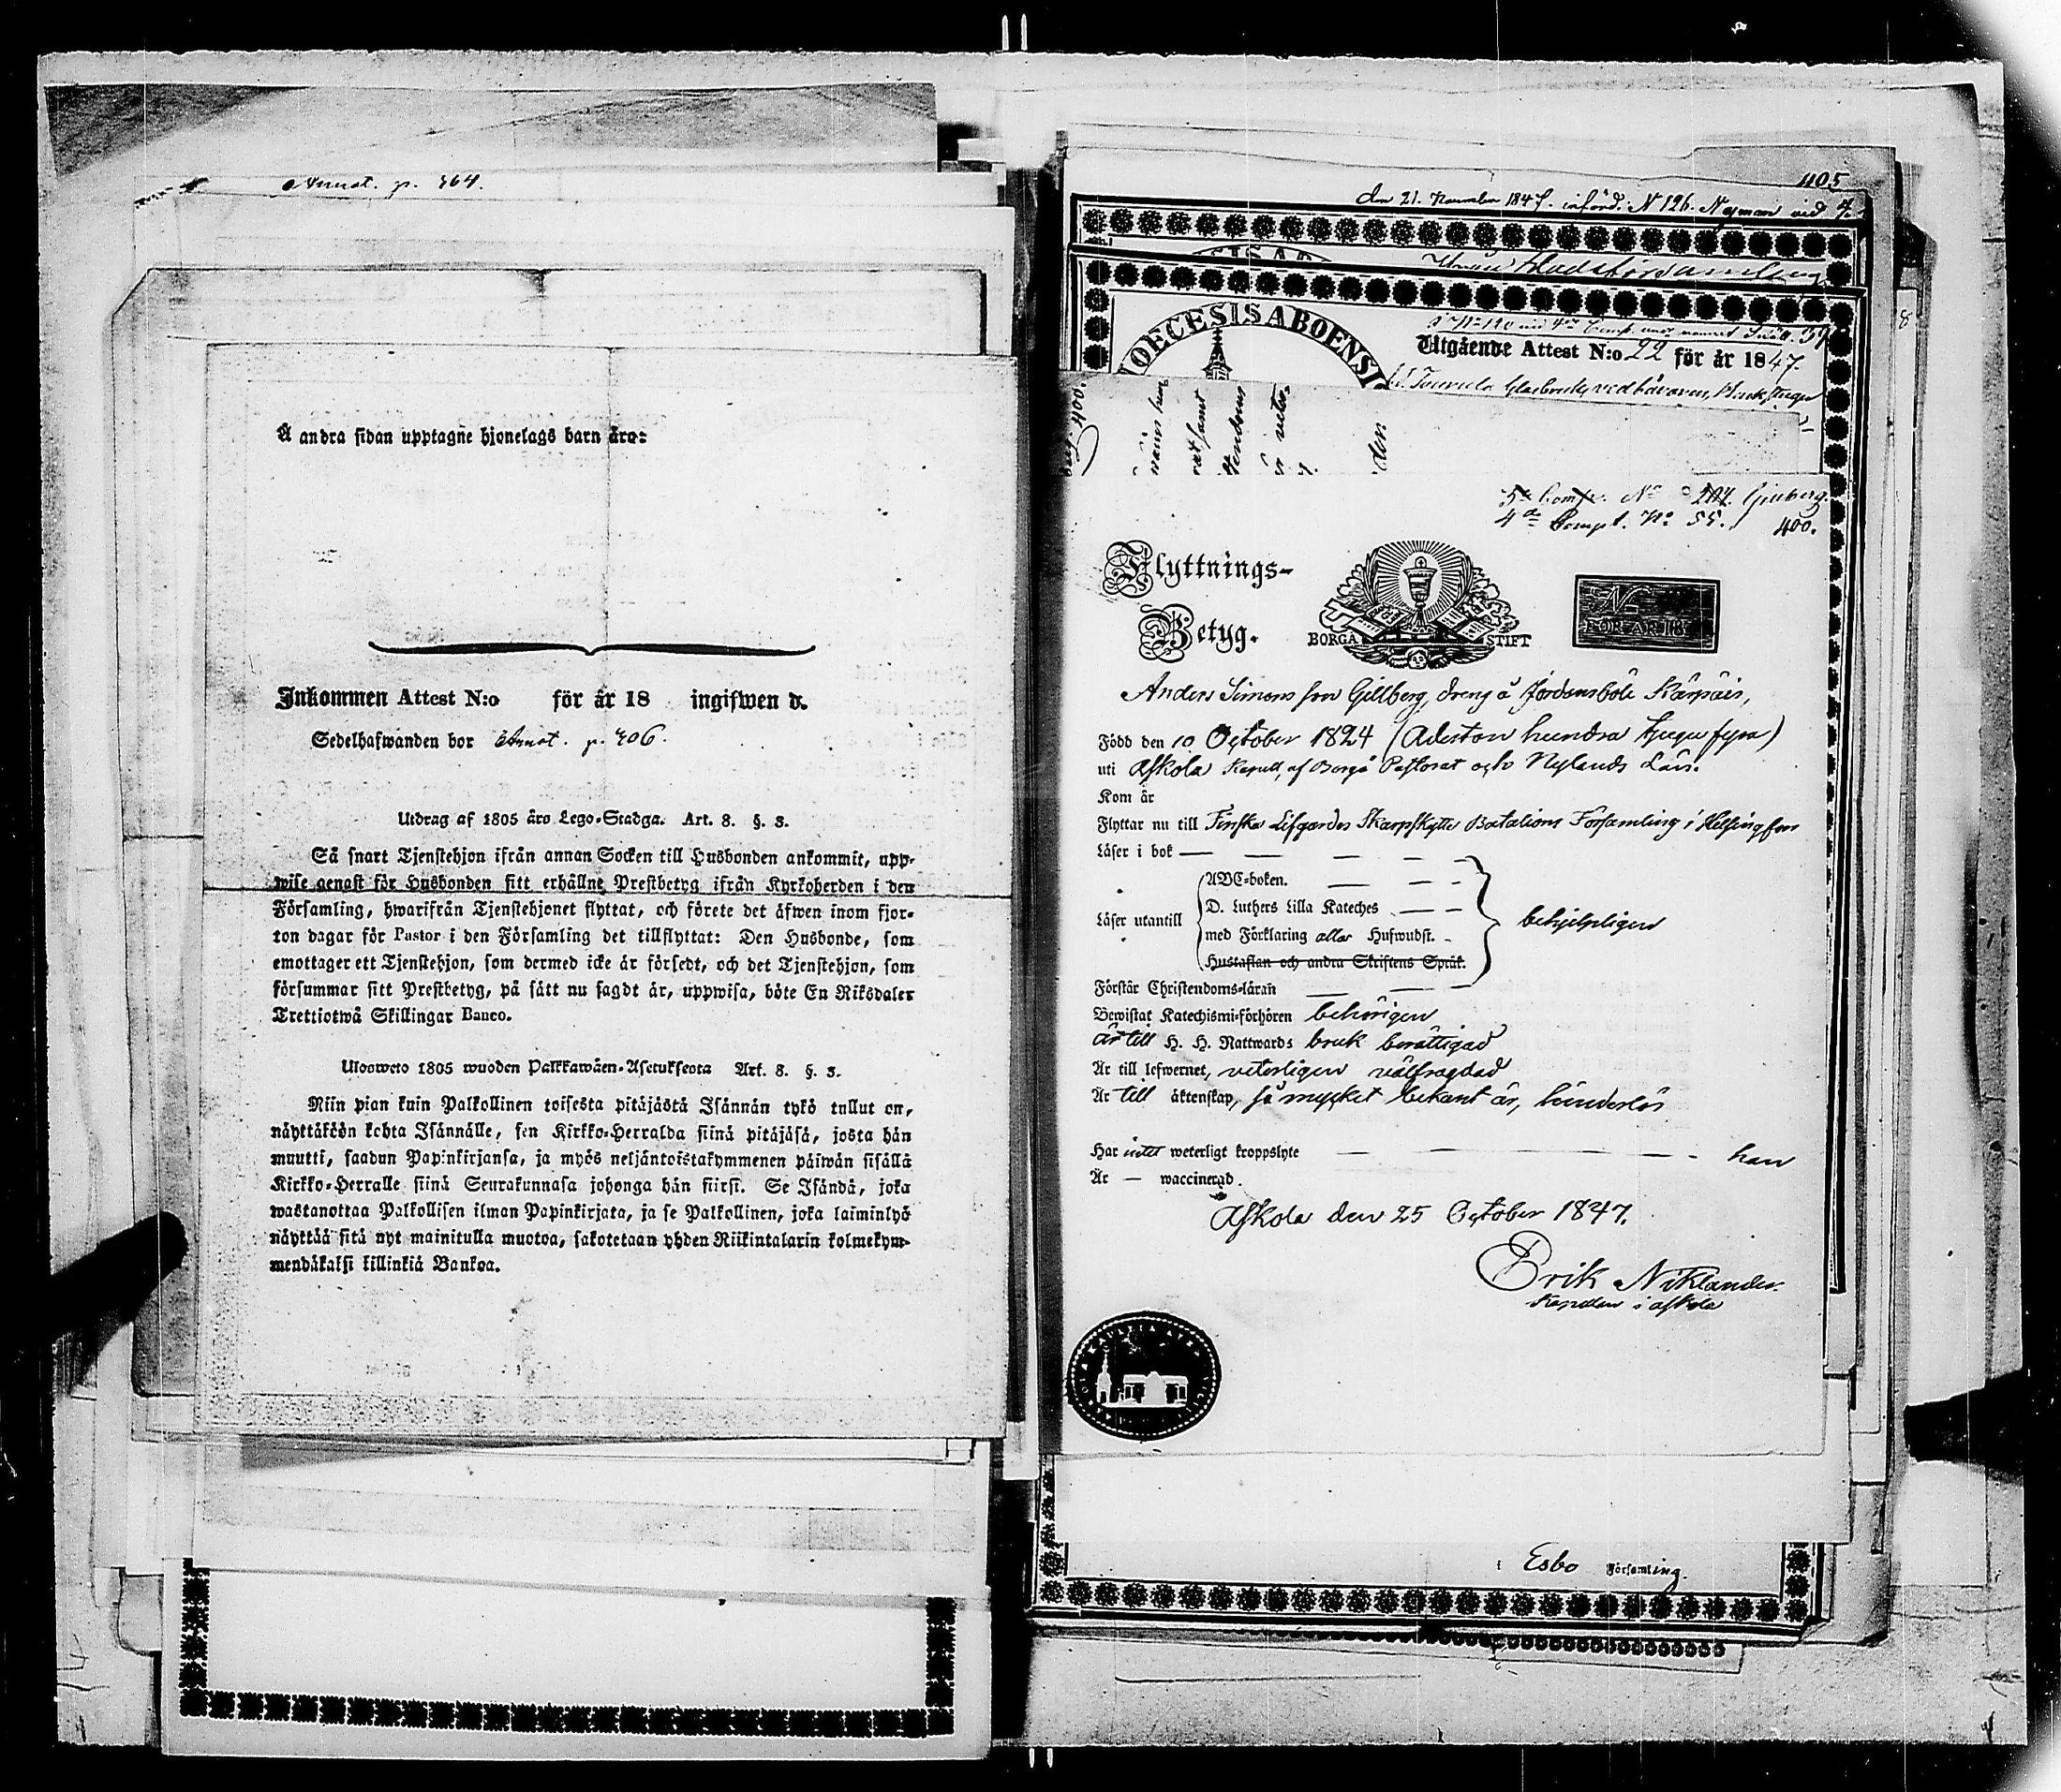 Annot. p. 464.
Å andra sidan upptagne hjonelags barn äro:
Inkommen Attest N:o för år 18 ingifwen d.
Sedelhafwanden bor Annot. p. 406.
Utdrag af 1805 års Lego-Stadga. Art. 8. §. 3.
Så snart Tjenstehjon ifrån annan Socken till Husbonden ankommit, upp-
wise genast för Husbonden sitt erhållne Prestbetyg ifrån Kyrkoherden i den
Församling, hwarifrån Tjenstehjonet flyttat, och förete det äfwen inom fjor-
ton dagar för Pastor i den Församling det tillflyttat: Den Husbonde, som
emottager ett Tjenstehjon, som dermed icke är försedt, och det Tjenstehjon, som
försummar sitt Prestbetyg, på sätt nu sagdt är, uppwisa, böte En Riksdaler
Trettiotwå Skillingar Banco.
Ulosweto 1805 wuoden Palkkawäen-Asetuksesta Art. 8. §. 3.
Niin pian kuin Palkollinen toisesta pitäjästä Isännän tykö tullut on,
näyttäköön kohta Isännälle, sen Kirkko-Herralda siinä pitäjäsä, josta hän
muutti, saadun Papinkirjansa, ja myös neljäntoistakymmenen päiwän sisällä
Kirkko-Herralle siinä Seurakunnasa johonga hän siirsi. Se Isändä, joka
wastanottaa Palkollisen ilman Papinkirjata, ja se Palkollinen, joka laiminlyö
näyttää sitä nyt mainitulla muotoa, sakotetaan yhden Riikintalarin kolmekym-
mendäkaksi killinkiä Bankoa.
405
den 21. November 1847. införd. N 126. Nyman vid 4.
Stadsförsamling
DIOECESIS ABOENSI
Utgående Attest N:o 22 för år 1847.
5te Comp. No 207. Gjuberg.
4de Compt. No 55. 400.
Flyttnings-
Betyg.
BORGÅ STIFT
No
FÖR ÅR 18
Anders Simons son Gillberg, dreng å Jordansböle Kärpäis,
Född den 10 October 1824 (Aderton hundra tjugufyra)
uti Askola Kapell, af Borgå Pastorat och Nylands Län.
Kom år
Flyttar nu till Finska Lifgardes Skarpskytte Bataljons Församling i Helsingfors
Läser i bok
ABC-boken.
D. Luthers Lilla Kateches
Läser utantill
med Förklaring allar Hufwudst.
behjelpligen
Hustaflan och andra Skriftens Språk.
Förstår Christendoms-läran
Bewistat Katechismi-förhören behörigen
är till H. H. Nattwards bruk berättigad
Är till lefwernet, veterligen välfrägdad
Är till äktenskap, så mycket bekant är, hinderlös
Har intet weterligt kroppslyte han
Är waccinerad.
Askola den 25 October 1847.
Erik Niklander.
Kapellan i Askola
Esbo Församling.